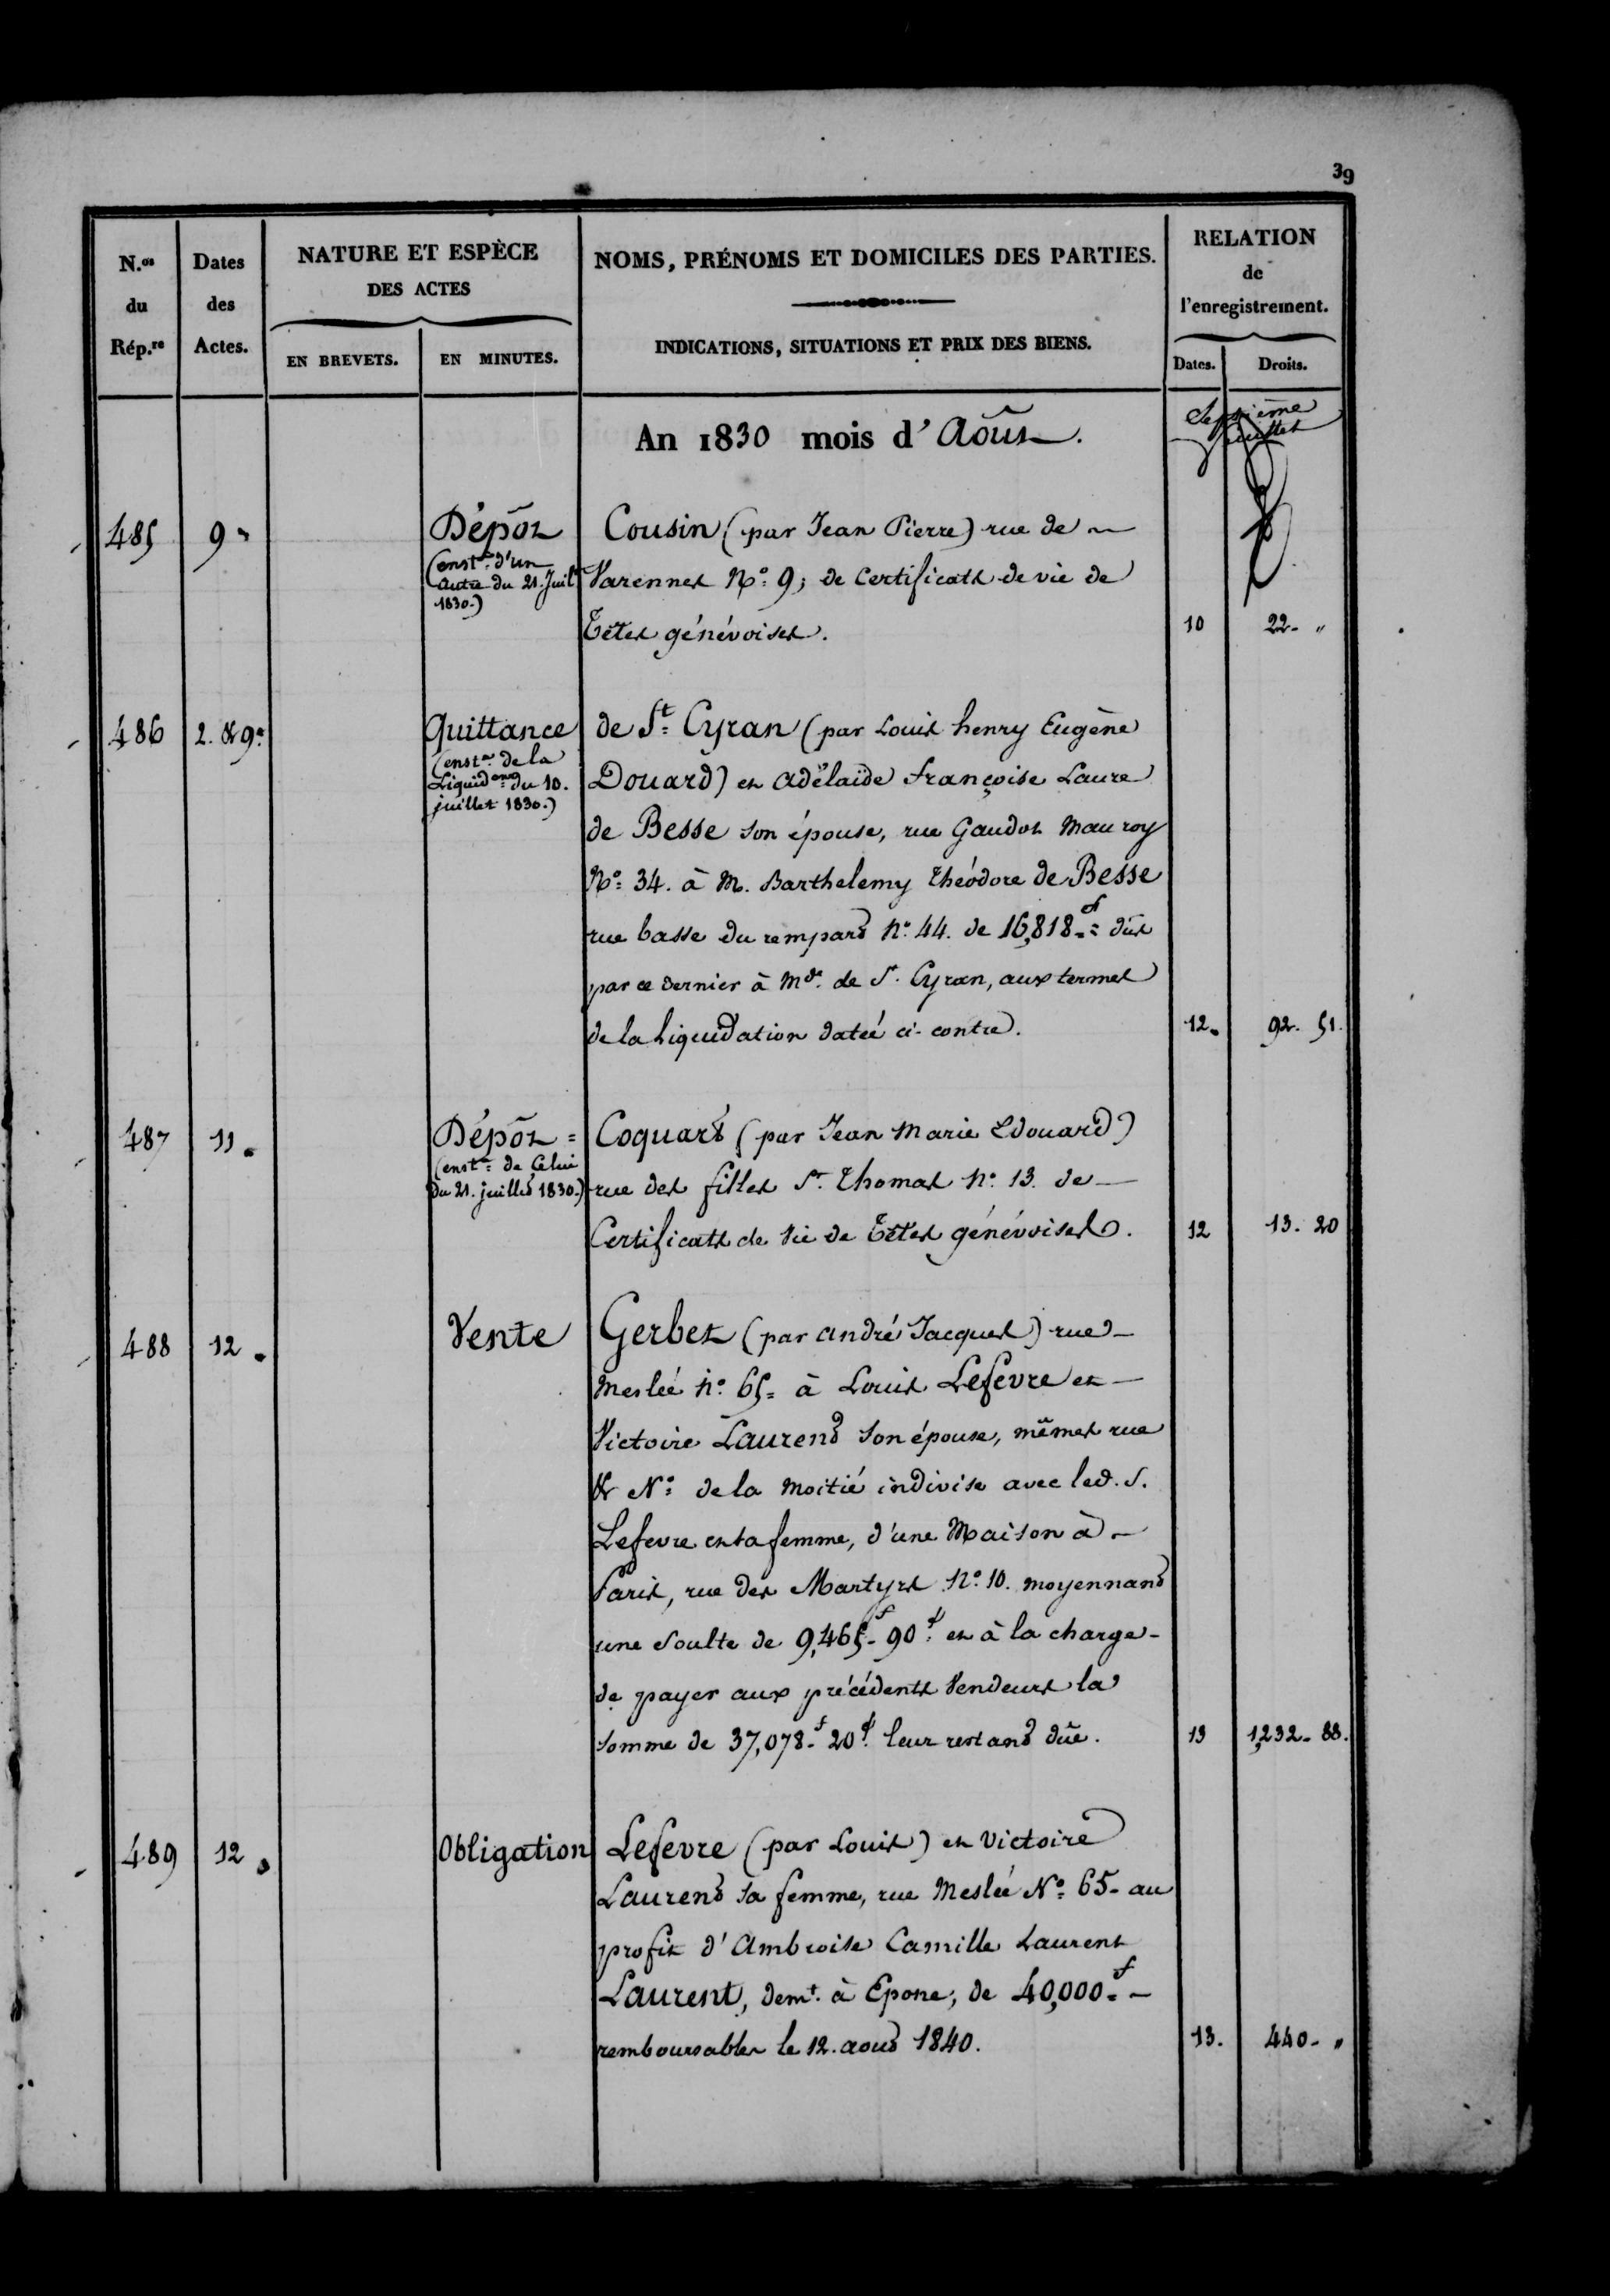 39
N.os du Rép.re
Dates des Actes.
NATURE ET ESPÈCE
DES ACTES
EN BREVETS.
EN MINUTES.
NOMS, PRÉNOMS ET DOMICILES DES PARTIES.
INDICATIONS, SITUATIONS ET PRIX DES BIENS.
RELATION
de
l'enregistrement.
Dates.
Droits.
Septième
feuillet
An 1830 mois d'Août.
485
9
Dépôt
(enst. d'un
autre du 21. Juilt
1830.)
Cousin (par Jean Pierre) rue de
Varennes No. 9; de Certificats de vie de
Têtes génévoises.
10
22 - "
486
2. & 9.
Quittance
(enst. de la
Liquidon du 10.
juillet 1830.)
de St. Cyran (par Louis henry Eugène
Douard) et adélaïde françoise Laure
de Besse son épouse, rue Gaudot Mauroy
No. 34. à M. Barthelemy Théodore de Besse
rue basse du rempart no. 44. de 16,818.f dûs
par ce dernier à Mde. de St. Cyran, aux termes
de la Liquidation datée ci-contre.
12.
92. 51.
487
11.
Dépôt =
(enst. de Celui
du 21. juillet 1830.)
Coquart (par Jean Marie Edouard)
rue des filles St. Thomas no. 13. de
Certificats de Vie de Têtes génévoises.
12
13. 20
488
12.
Vente
Gerbet (par andré Jacques) rue
Meslée no. 65 = à Louis Lefevre et
Victoire Laurent son épouse, mêmes rue
& No. de la moitié indivise avec led. S.
Lefevre et sa femme, d'une Maison à
Paris, rue des Martyrs no. 10. moyennant
une soulte de 9,465f 90c et à la charge
de payer aux précédents Vendeurs la
somme de 37,078f 20c leur restant dûe.
13
1,232 - 88.
489
12.
Obligation
Lefevre (par Louis) et Victoire
Laurent sa femme, rue Meslée No. 65 - au
profit d'Ambroise Camille Laurent
Laurent, demt. à Epone, de 40,000.f
remboursables le 12. aout 1840.
13.
440 - "